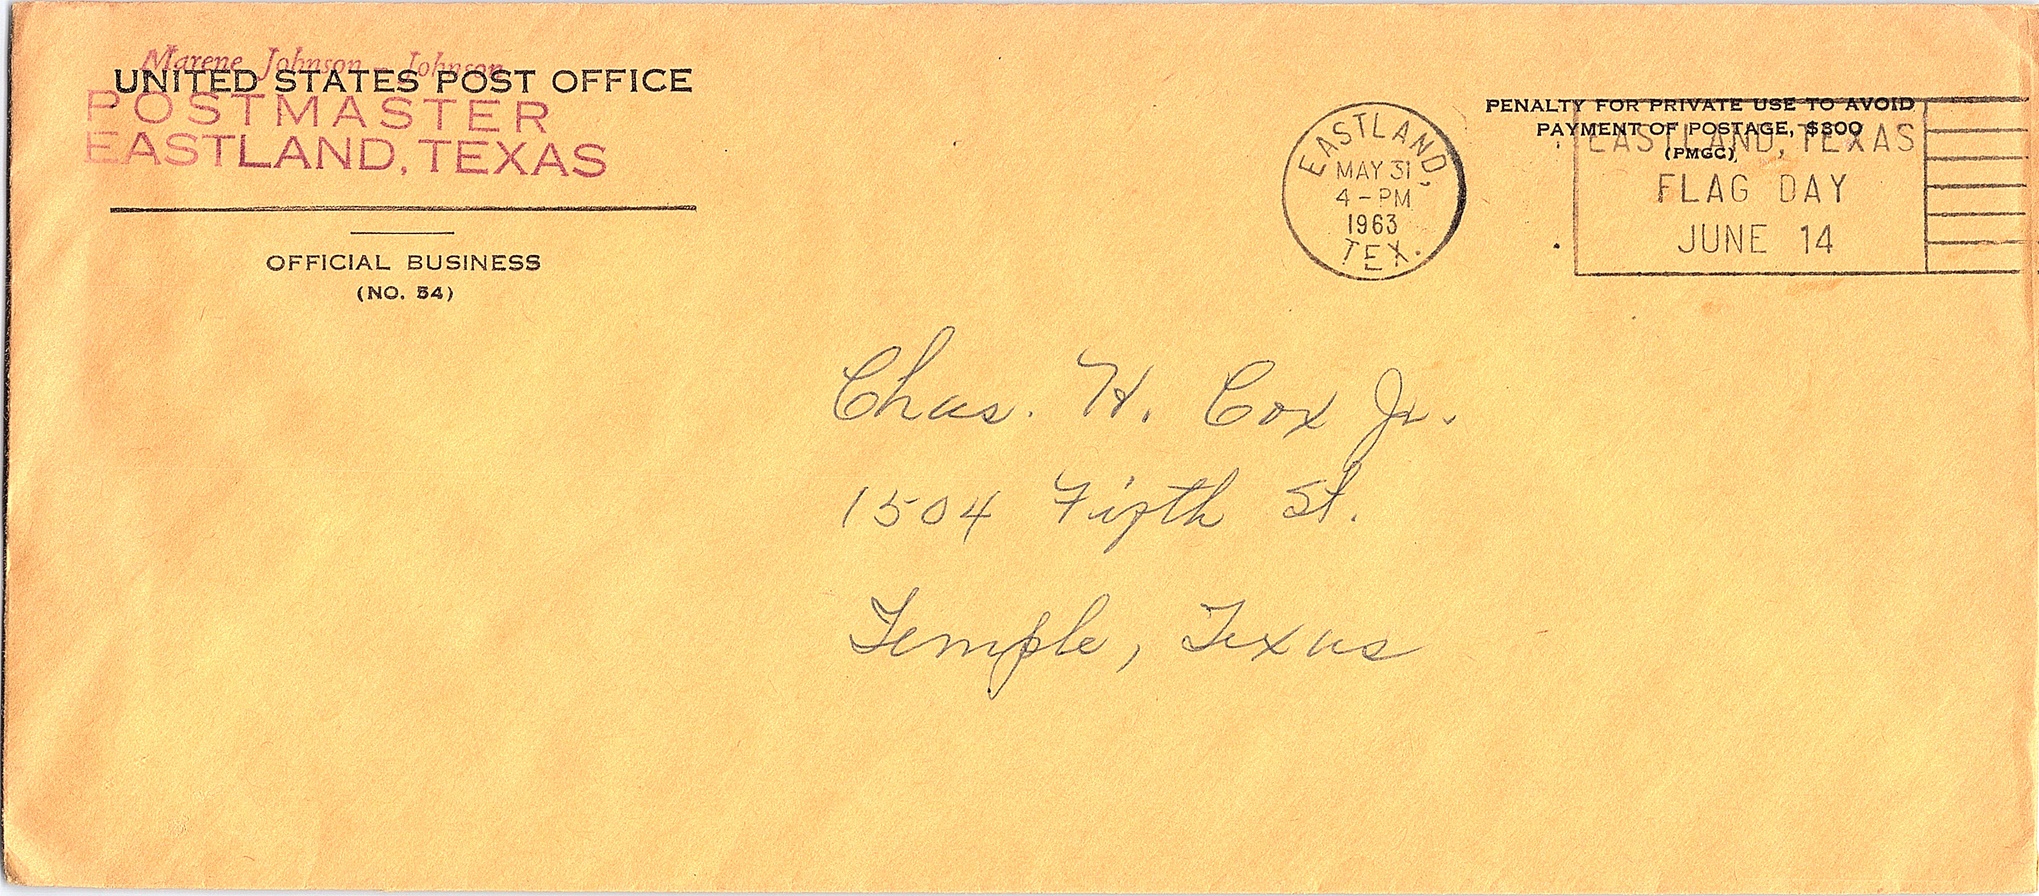 Marene Johnson - Johnson
UNITED STATES POST OFFICE
POSTMASTER
EASTLAND, TEXAS
OFFICIAL BUSINESS
(NO. 54)
EASTLAND,
MAY 31
4-PM
1963
TEX.
PENALTY FOR PRIVATE USE TO AVOID
PAYMENT OF POSTAGE, $300
(PMGC)
EASTLAND, TEXAS
FLAG DAY
JUNE 14
Chas. H. Cox Jr.
1504 Fifth St.
Temple, Texas